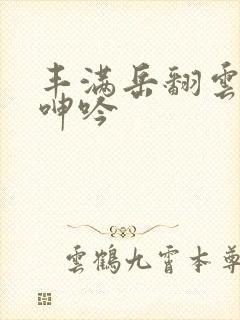 丰满岳翻雲
呻吟
雲鶴九霄本尊